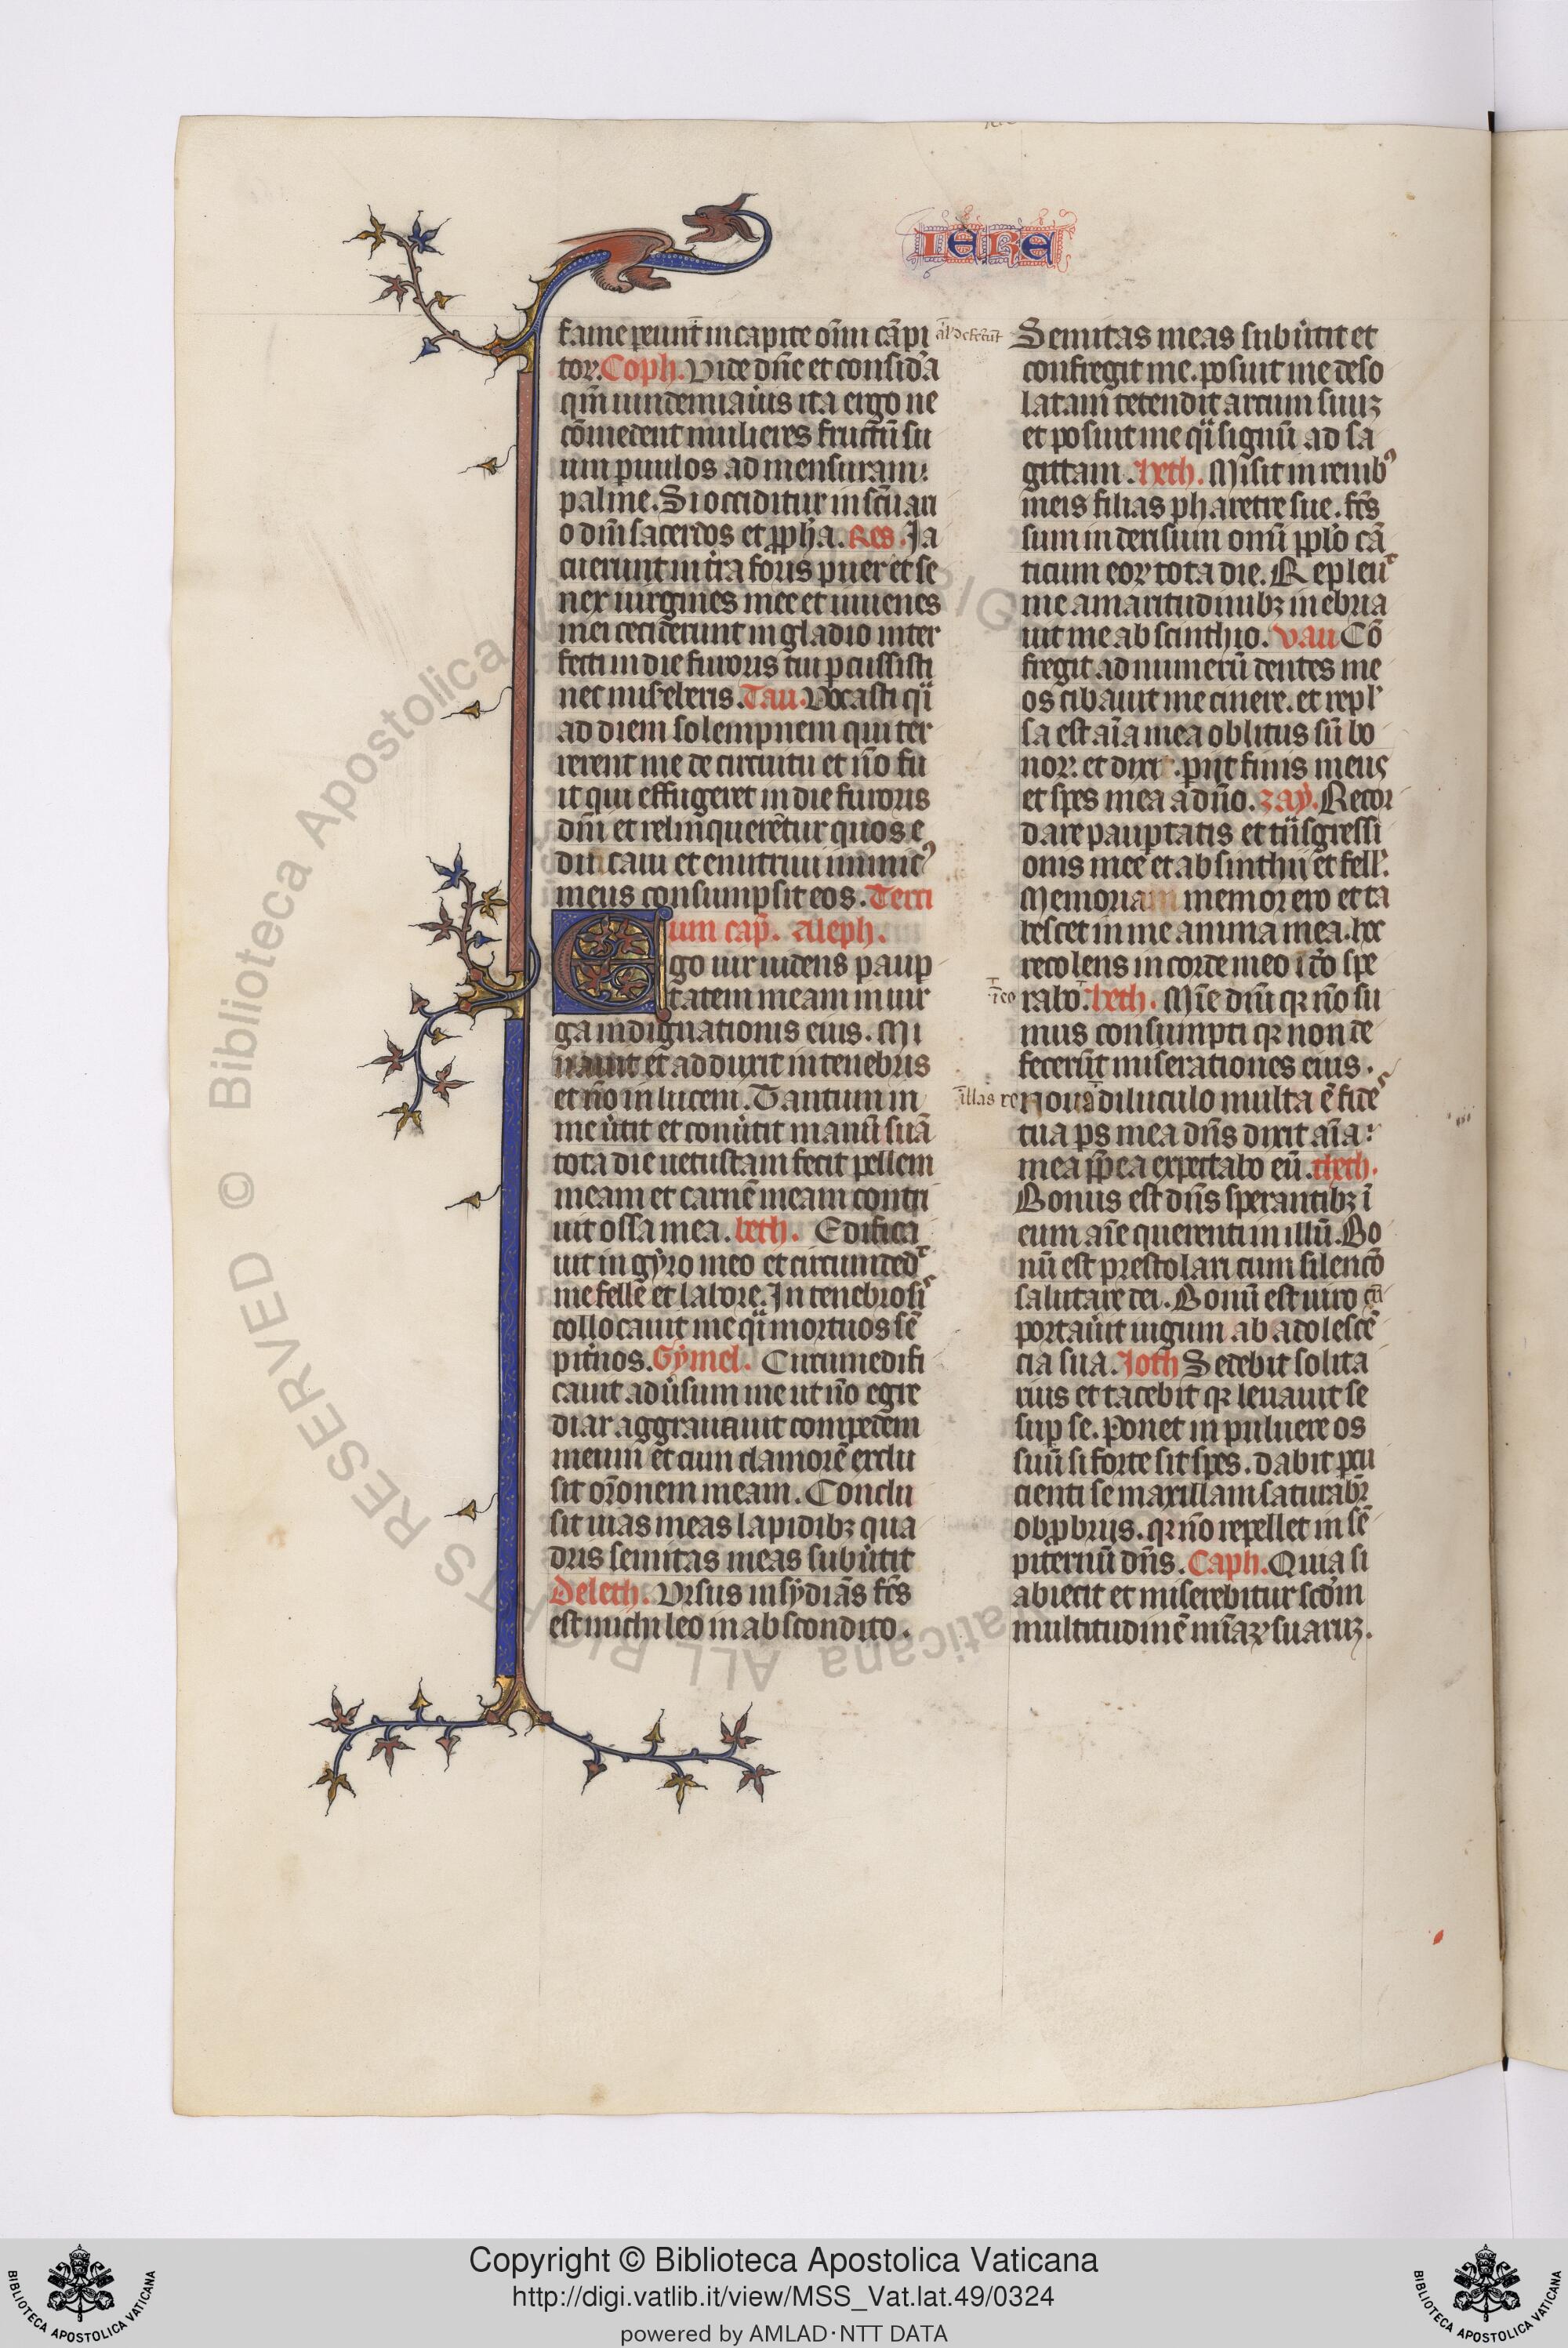 IERE
fame perunt̄ in capite oīm cāpi
toꝝ. Coph. Vide dn̄e et consid̓a
qm̄ uindemiau̓is ita ergo ne
cōmedent mulieres fructū su
um puulos ad mensuram
palme. Si occiditur in sc̄uari
o dn̄i sacerdos et ꝓpha. Res. Ja
cuerunt in t̓ra foris puer et se
nex uirgines mee et iuuenes
mei ceciderunt in gladio inter
fecti in die furoris tui ꝑcussisti
nec miseberis. Tau. Vocasti qͥ
ad diem solempnem qui ter
rerent me de circuitu et nō fu
it qui effugeret in die furoris
dn̄i et relinquerētur quos e
du caui et enutriui inimicꝰ
meus consumpsit eos. Terci
um cap̄. Aleph.
Ego uir uidens paup
tatem meam in uir
ga indignationis eius. Mi
nauit et adduxit in tenebris
et nō in lucem. Tantum in
me u̓tit et conu̓tit manū suā
tota die uetustam fecit pellem
meam et carnē meam contri
uit ossa mea. beth. Edifica
uit in gẏro meo et circumded
me felle et labore. In tenebrosis
collocauit me qͣi mortuos sē
pit̓nos. Gẏmel. Circumedifi
cauit adu̓sum me ut nō egre
diar aggrauauit compedem
meum et cum clamorē exclu
sit or̄onem meam. Conclu
sit uias meas lapidibꝫ qua
dris semitas meas subu̓tit
Deleth. Vrsus insẏdiās fc̄s
est michi leo in abscondito.
al̓ defec̄unt
Semitas meas subu̓tit et
confregit me. posuit me deso
latam tetendit arcum suuꝫ
et posuit me qͣi signū ad sa
gittam. heth. Misit in renibꝰ
meis filias pharetre sue. fc̄s
sum in derisum omī pplo̓ cā
ticum eoꝝ tota die. Repleu
me amaritudinibꝫ inebria
uit me abscinthio. Vau Cō
fregit ad numerū dentes me
os cibauit me cinere. et repl
sa est aīa mea oblitus sū bo
noꝝ. et dixi. periit finis meus
et spes mea a dn̄o. zaẏ. Recor
dare pauptatis et tͣnsgressi
onis mee et absinthii et fell.
Memoria memor ero et ta
bescet in me anima mea. hec
recolens in corde meo id̓o spe
īeo
rabo. heth. Mīe dn̄i qꝛ nō su
mus consumpti qꝛ non de
fecerūt miserationes eius.
illas re
Noui diluculo multa ē fides
tua ps mea dn̄s dixit aīa
mea ꝓpea expectabo eū. theth.
Bonus est dn̄s sperantibꝫ ī
eum aīe querenti in illū. Bo
nū est prestolari cum silencō
salutare dei. Bonū est uiro cū
portau̓it iugum ab adolescē
cia sua. Joth Sedebit solita
rius et tacebit qꝛ leuauit se
sup se. Ponet in puluere os
suū si forte sit spes. dabit pcu
cienti se maxillam saturabr̄
obprbriis. qꝛ nō repellet in sē
piternū dn̄s. Caph. Quia si
abiecit et miserebitur scd̄m
multitudinē mīaꝝ suaruꝫ.
© Biblioteca Apostolica Vaticana ALL RIGHTS RESERVED
Copyright © Biblioteca Apostolica Vaticana
http://digi.vatlib.it/view/MSS_Vat.lat.49/0324
powered by AMLAD·NTT DATA
BIBLIOTECA APOSTOLICA VATICANA
BIBLIOTECA APOSTOLICA VATICANA